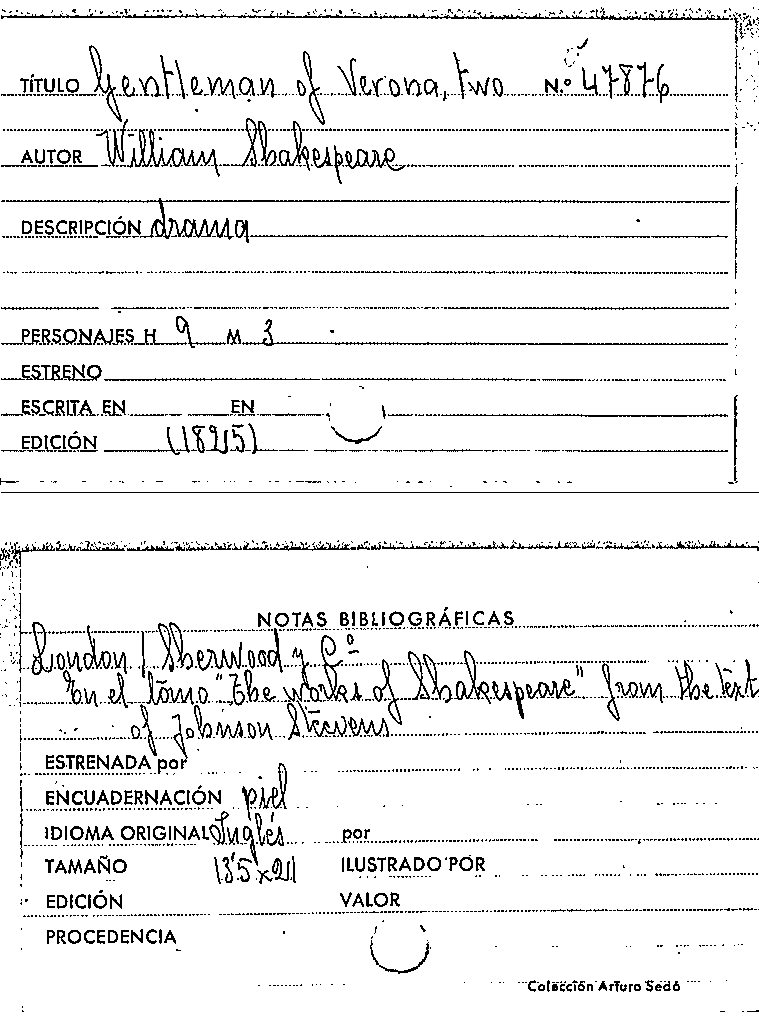 TÍTULO Gentleman of Verona, two N.º 47876
AUTOR William Shakespeare
DESCRIPCIÓN drama
PERSONAJES H 9 M 3
ESTRENO
ESCRITA EN EN
EDICIÓN (1825)
NOTAS BIBLIOGRÁFICAS
London / Sherwood y Cº
En el tomo "The works of Shakespeare" from the text
of Johnson Steevens
ESTRENADA por
ENCUADERNACIÓN piel
IDIOMA ORIGINAL Inglés por
TAMAÑO 13'5 x 21 ILUSTRADO POR
EDICIÓN VALOR
PROCEDENCIA
Colección Arturo Sedó